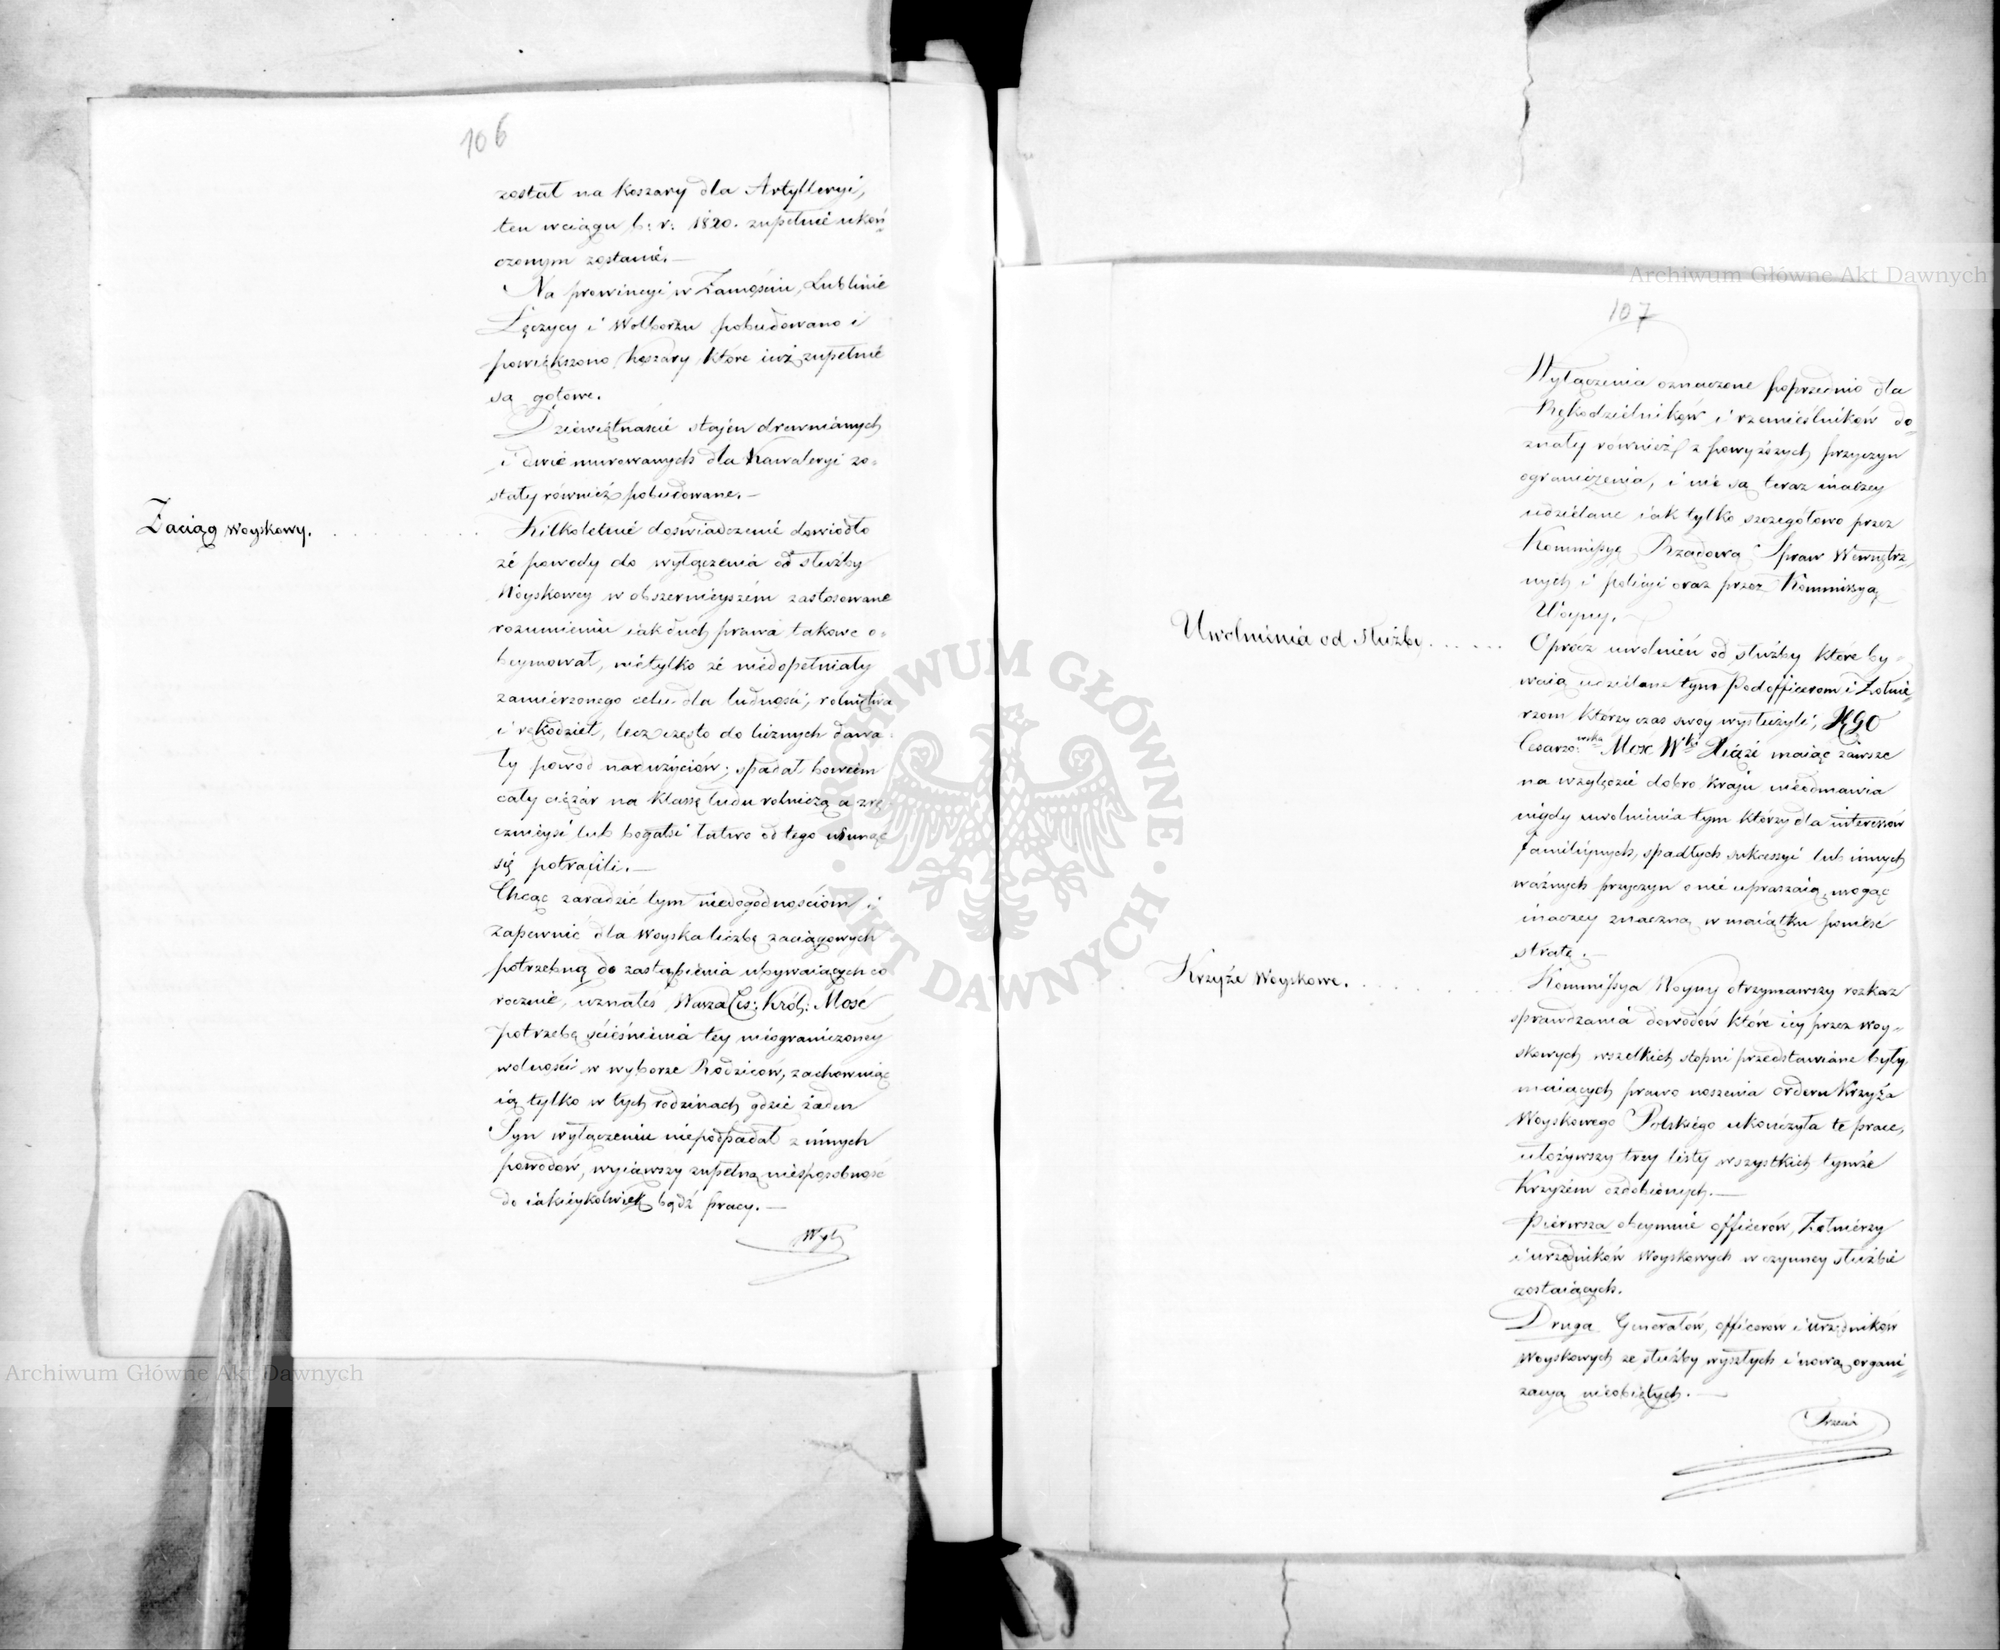 106
został na koszary dla Artylleryi,
ten w ciągu b: r: 1820. zupełnie ukoń=
czonym zostanie.—
Na prowincyi w Zamościu, Lublinie
Łęczycy i Wolborzu pobudowano i
powiększono koszary które iuż zupełnie
są gotowe.
Dziewiętnaście stajen drewnianych
i dwie murowanych dla Kawaleryi zo=
stały również pobudowane.—
Zaciąg Woyskowy.
Kilkoletnie doświadczenie dowiodło
że powody do wyłączenia od służby
Woyskowey w obszernieyszém zastosowane
rozumieniu iak duch prawa takowe o=
beymował, nietylko że niedopełniały
zamierzonego celu dla ludności, rolnictwa
i rękodzieł, lecz często do licznych dawa=
ły powód nadużyciów; spadał bowiem
cały ciężar na klassę ludu rolniczą a zrę=
cznieysi lub bogatsi łatwo od tego usunąć
się potrafili.—
Chcąc zaradzić tym niedogodnościom i
zapewnić dla Woyska liczbę zaciągowych
potrzebną do zastąpienia ubywaiących co
rocznie, uznałeś Wasza Ces: Król: Mość
potrzebę ścieśnienia tey nieograniczoney
wolności w wyborze Rodziców, zachowuiąc
ią tylko w tych rodzinach gdzie żaden
Syn wyłączeniu niepodpadał z innych
powodów, wyiąwszy zupełną niesposobność
do iakieykolwiek bądź pracy.—
Wył
107
Wyłączenia oznaczone poprzednio dla
Rękodzielników i rzemieślników do=
znały również z powyższych przyczyn
ograniczenia, i nie są teraz inaczey
udzielane iak tylko szczegółowo przez
Kommissyę Rządową Spraw Wewnętrz=
nych i policyi oraz przez Kommissyą
Woyny.
Uwolnienia od służby.
Oprócz uwolnień od służby które by=
waią udzielane tym Podofficerom i Żołnie=
rzom którzy czas swoy wysłużyli, JEGO
Cesarzo:wska Mość W.ki Xiąże maiąc zawsze
na względzie dobro kraju nieodmawia
nigdy uwolnienia tym którzy dla interessów
familiynych, spadłych sukcessyi lub innych
ważnych przyczyn o nie upraszaią, mogąc
inaczey znaczną w maiątku ponieść
stratę.—
Krzyże Woyskowe.
Kommissya Woyny otrzymawszy rozkaz
sprawdzania dowodów które iey przez Woy=
skowych wszelkich stopni przedstawiane były,
maiących prawo noszenia orderu Krzyża
Woyskowego Polskiego ukończyła te prace,
ułożywszy trzy listy wszystkich tymże
Krzyżem ozdobionych.—
Pierwsza obeymuie officerów, Żołnierzy
i urzędników Woyskowych w czynney służbie
zostaiących.
Druga Generałów, officerów i urzędników
Woyskowych ze służby wyszłych i nową organi=
zacyą nieobiętych.—
Trzecia
Archiwum Główne Akt Dawnych
Archiwum Główne Akt Dawnych
ARCHIWUM GŁÓWNE
AKT DAWNYCH